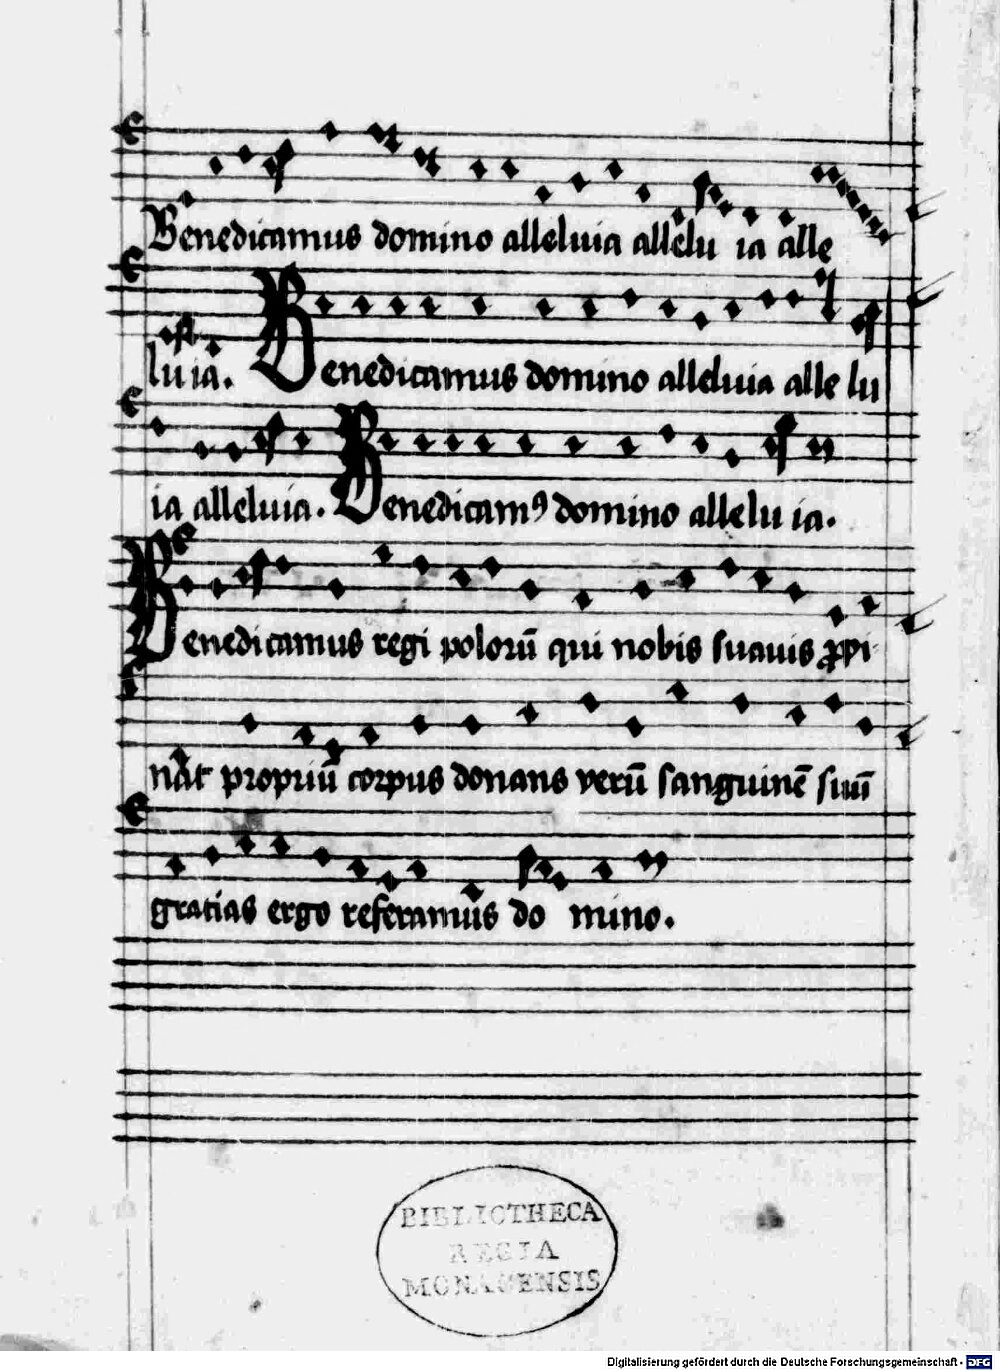 Benedicamus domino alleluia allelu ia alle
lu ia. Benedicamus domino alleluia alle lu
ia alleluia. Benedicamꝯ domino allelu ia.
Benedicamus regi polorū qui nobis suauis ꝓpi
nat propriū corpus donans verū sanguinē suū
gratias ergo referamus do mino.
BIBLIOTHECA
REGIA
MONACENSIS
Digitalisierung gefördert durch die Deutsche Forschungsgemeinschaft - DFG